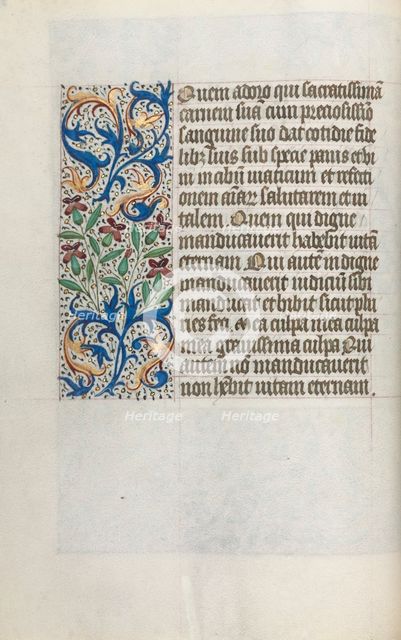 Quem adoro qui sacratissimā
carnem suā cum preciosissīo
sanguine suo dat cotidie fide
libꝫ suis sub specie panis et vi
ni in cibum viaticum et refecti
onem aīaꝝ salutarem et vi
talem. Quem qui digne
manducaverit habebit vitā
eternam. Qui autē indigne
manducaverit iudicium sibi
manducat et bibit sicut plu
ries feci, et ea culpa mea culpa
mea gravissima culpa. Qui
autem nō manducaverit
non hēbit vitam eternam.
Heritage
Heritage
Heritage
Heritage
Heritage